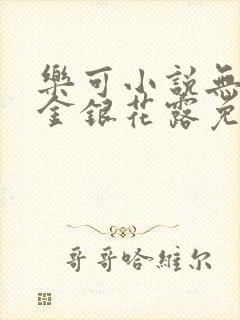 樂可小說無
金銀花露免
哥哥哈維尔